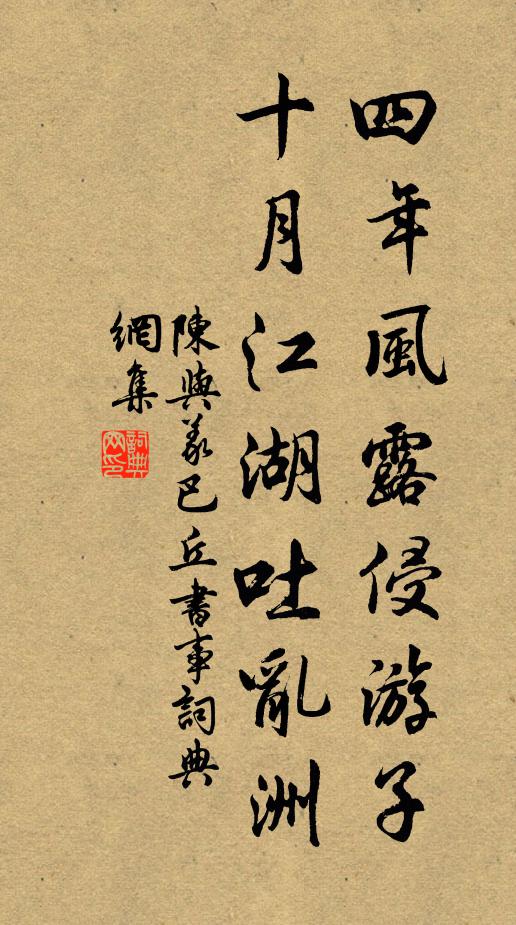 四年風露侵游子
十月江湖吐亂洲
陳與義巴丘書事詞典
網集
詞典
网印